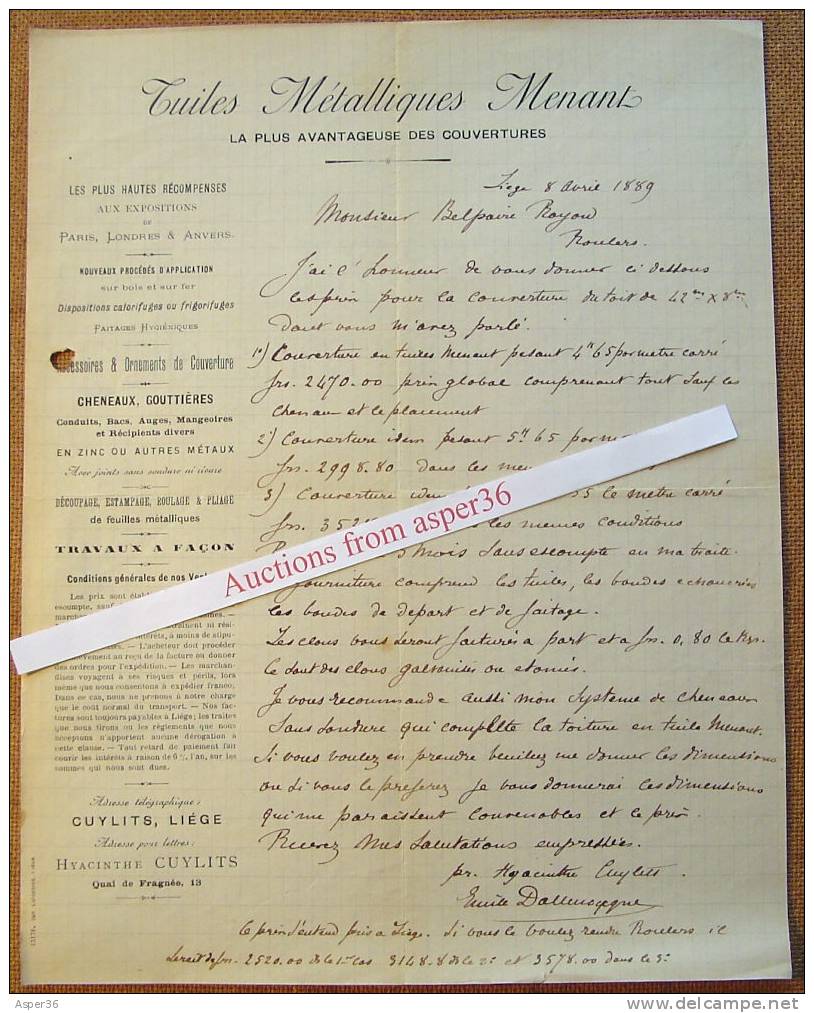 Tuiles Métalliques Menant
LA PLUS AVANTAGEUSE DES COUVERTURES
LES PLUS HAUTES RÉCOMPENSES
AUX EXPOSITIONS
DE
PARIS, LONDRES & ANVERS.
NOUVEAUX PROCÉDÉS D'APPLICATION
sur bois et sur fer
Dispositions calorifuges ou frigorifuges
FAITAGES HYGIÉNIQUES
Accessoires & Ornements de Couverture
CHENEAUX, GOUTTIÈRES
Conduits, Bacs, Auges, Mangeoires
et Récipients divers
EN ZINC OU AUTRES MÉTAUX
Avec joints sans soudure ni rivure
DÉCOUPAGE, ESTAMPAGE, ROULAGE & PLIAGE
de feuilles métalliques
TRAVAUX A FAÇON
Conditions générales de nos
Les prix sont
escompte,
à moins de stipu-
L'acheteur doit procéder
au reçu de la facture ou donner
des ordres pour l'expédition. — Les marchan-
dises voyagent à ses risques et périls, lors
même que nous consentons à expédier franco.
Dans ce cas, nous ne prenons à notre charge
que le coût normal du transport. — Nos fac-
tures sont toujours payables à Liége; les traites
que nous tirons ou les règlements que nous
acceptons n'apportent aucune dérogation à
cette clause. — Tout retard de paiement fait
courir les intérêts à raison de 6 %, l'an, sur les
sommes qui nous sont dues.
Adresse télégraphique:
CUYLITS, LIÉGE
Adresse pour lettres:
HYACINTHE CUYLITS
Quai de Fragnée, 13
Liege 8 avril 1889
Monsieur Belpaire
Roulers.
J'ai l'honneur de vous donner ci dessous
les prix pour la couverture du toit de 42m x 8m
dont vous m'avez parlé.
1°) Couverture en tuiles Menant pesant 4k65 par metre carré
frs. 2470.00 prix global comprenant tout sauf les
cheneaux et le placement
2°) Couverture idem pesant 5k65 par
frs. 2998.80 dans les
3) Couverture 55 le metre carré
frs. 35 les memes conditions
mois sans escompte en ma traite.
fourniture comprend les tuiles, les bandes
les bandes de depart et de faitage.
Les clous vous seront facturés a part et a frs. 0,80 le kgr.
ce sont des clous galvanisés ou etamés.
Je vous recommande aussi mon systeme de cheneaux
sans soudure qui complette la toiture en tuile Menant.
Si vous voulez en prendre veuillez me donner les dimensions
ou si vous le preferez je vous donnerai les dimensions
qui me paraissent convenables et le prix.
Recevez mes salutations empressées.
pr. Hyacinthe Cuylits.
Emile
Le prix s'entend pris a Liege. Si vous le voulez rendu Roulers il
serait de frs. 2520.00 ds le 1er cas 3148.8 ds le 2e et 3578.00 dans le 3e
Auctions from asper36
Asper36
delcampe.net